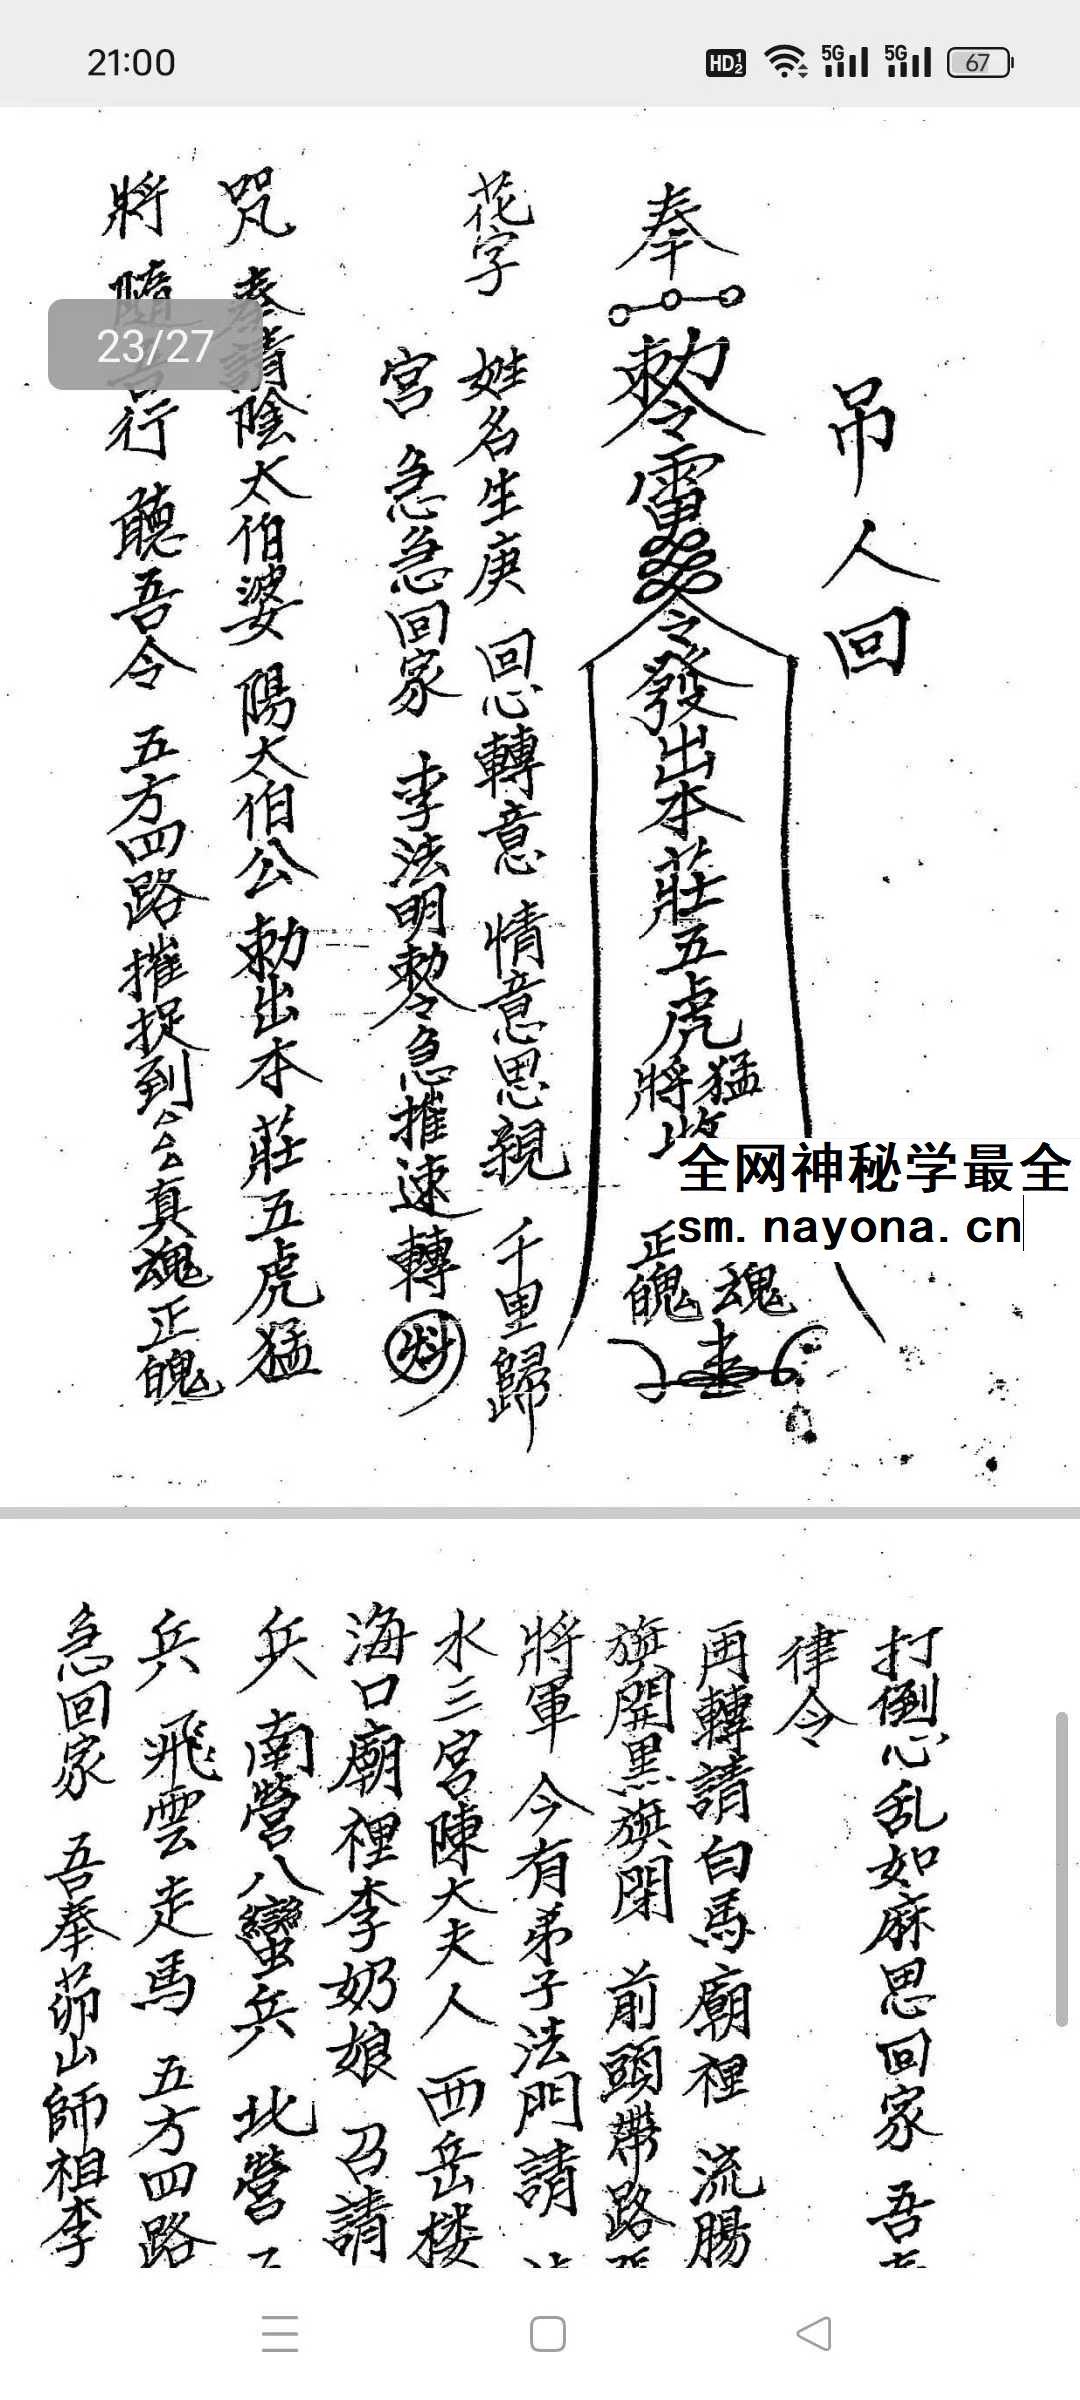 21:00
HD 1 2
5G
5G
67
23/27
吊人回
奉
勅令雷
令發出本莊五虎
猛
將
正魄
魂
花字
姓名生庚 回心轉意 情意思親 千里歸
宮 急急回家 李法明勅令急摧速轉
咒 奉請陰太伯婆 陽太伯公 勅出本莊五虎猛
將 隨吾行 聽吾令 五方四路摧捉到厶厶真魂正魄
全网神秘学最全
sm.nayona.cn
打倒心乱如麻思回家 吾
律令
再轉請白馬廟裡 流腸
旗開黑旗閉 前頭帶路
將軍 今有弟子法門請
水三宮陳大夫人 西岳楼
海口廟裡李奶娘 召請
兵 南營八蠻兵 北營
兵 飛雲走馬 五方四路
急回家 吾奉茆山師祖李